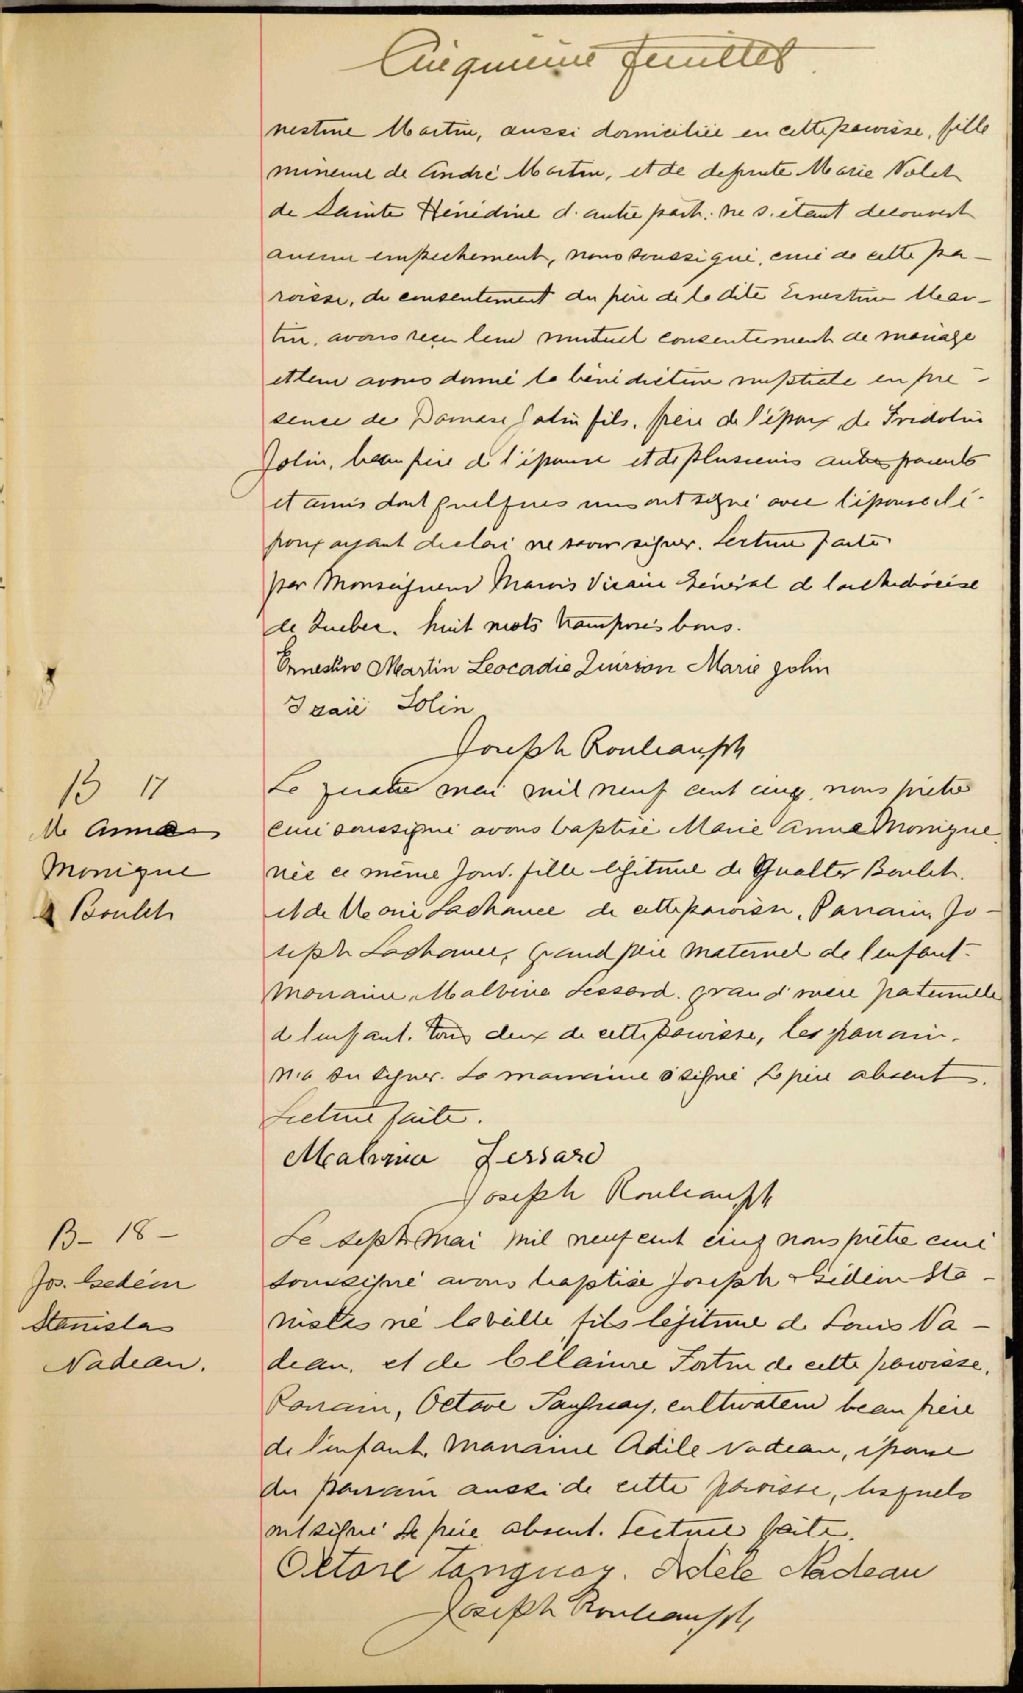 Cinquième feuillet
nestine Martin, aussi domiciliée en cette paroisse, fille
mineure de André Martin, et de defunte Marie Nolet
de Sainte Hénédine d'autre part; ne s'étant decouvert
aucun empêchement, nous soussigné, curé de cette pa-
roisse, du consentement du père de la dite Ernestine Mar-
tin, avons reçu leur mutuel consentement de mariage
et leur avons donné la bénédiction nuptiale en pré-
sence de Damase Jolin fils, frère de l'époux, de Fridolin
Jolin, beau frère de l'épouse et de plusieurs autres parents
et amis dont quelques uns ont signé avec l'épouse l'é-
poux ayant declaré ne savoir signer. Lecture faite
par Monseigneur Marois Vicaire Général de l'archidiocèse
de Quebec. huit mots transposés bons.
Ernestine Martin Leocadie Quirion Marie Jolin
Isaïe Jolin
Joseph Rouleau ptr
B 17
M. Anna
Monique
Boulet
Le quatre mai mil neuf cent cinq, nous prêtre
curé soussigné avons baptisé Marie Anna Monique
née ce même jour, fille légitime de Gualter Boulet
et de Marie Lachance de cette paroisse. Parrain Jo-
seph Lachance, grand père maternel de l'enfant.
Marraine Malvina Lessard, grand'mère paternelle
de l'enfant. tous deux de cette paroisse, les parrain.
n'a su signer. La marraine a signé Le père absent.
Lecture faite.
Malvina Lessard
Joseph Rouleau ptr
B- 18-
Jos. Gedéon
Stanislas
Nadeau.
Le sept mai mil neuf cent cinq nous prêtre curé
soussigné avons baptisé Joseph Gédéon Sta-
nislas né la veille fils légitime de Louis Na-
deau, et de Célanire Fortin de cette paroisse.
Parrain, Octave Tanguay, cultivateur beau frère
de l'enfant, Marraine Adèle Nadeau, épouse
du parrain aussi de cette paroisse, lesquels
ont signé Le père absent. Lecture faite.
Octave Tanguay. Adèle Nadeau
Joseph Rouleau ptr